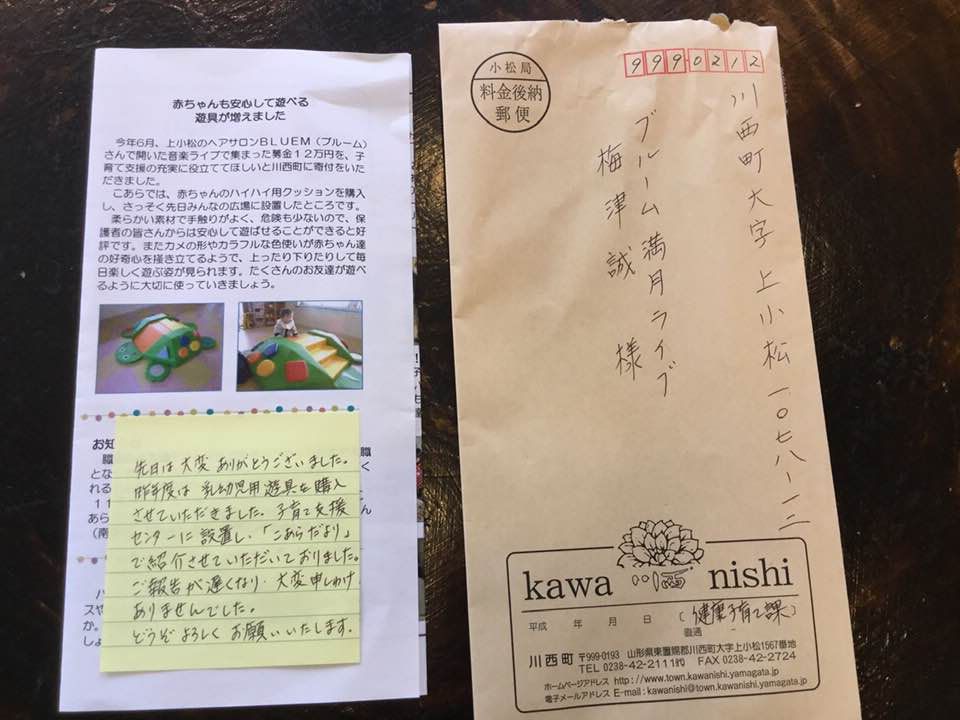 赤ちゃんも安心して遊べる
遊具が増えました
今年6月、上小松のヘアサロンBLUEM（ブルーム）
さんで開いた音楽ライブで集まった募金12万円を、子
育て支援の充実に役立ててほしいと川西町に寄付をいた
だきました。
こあらでは、赤ちゃんのハイハイ用クッションを購入
し、さっそく先日みんなの広場に設置したところです。
柔らかい素材で手触りがよく、危険も少ないので、保
護者の皆さんからは安心して遊ばせることができると好
評です。またカメの形やカラフルな色使いが赤ちゃん達
の好奇心を掻き立てるようで、上ったり下りたりして毎
日楽しく遊ぶ姿が見られます。たくさんのお友達が遊べ
るように大切に使っていきましょう。
お知
先日は大変ありがとうございました。
昨年度は乳幼児用遊具を購入
させていただきました。子育て支援
センターに設置し、「こあらだより」
で紹介させていただいておりました。
ご報告が遅くなり大変申しわけ
ありませんでした。
どうぞよろしくお願いいたします。
小松局
料金後納
郵便
9990212
川西町大字上小松一〇七八-一三
ブルーム満月ライブ
梅津誠様
kawa川西nishi
平成 年 月 日 (健康子育て課)
直通 -
川西町 〒999-0193 山形県東置賜郡川西町大字上小松1567番地
TEL 0238-42-2111㈹ FAX 0238-42-2724
ホームページアドレス http://www.town.kawanishi.yamagata.jp
電子メールアドレス E-mail:kawanishi@town.kawanishi.yamagata.jp